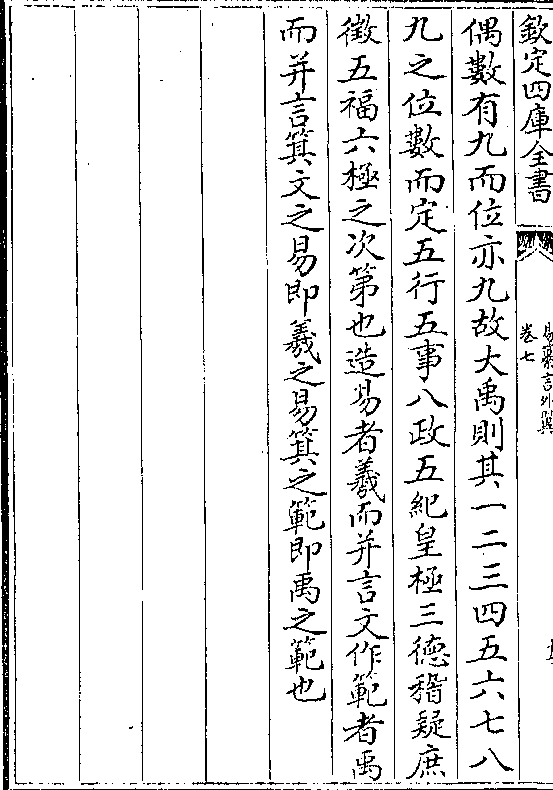 欽定四庫全書
易纂言外翼
卷七
偶數有九而位亦九故大禹則其一二三四五六七八
九之位數而定五行五事八政五紀皇極三德稽疑庶
徵五福六極之次第也造易者羲而并言文作範者禹
而并言箕文之易即羲之易箕之範即禹之範也